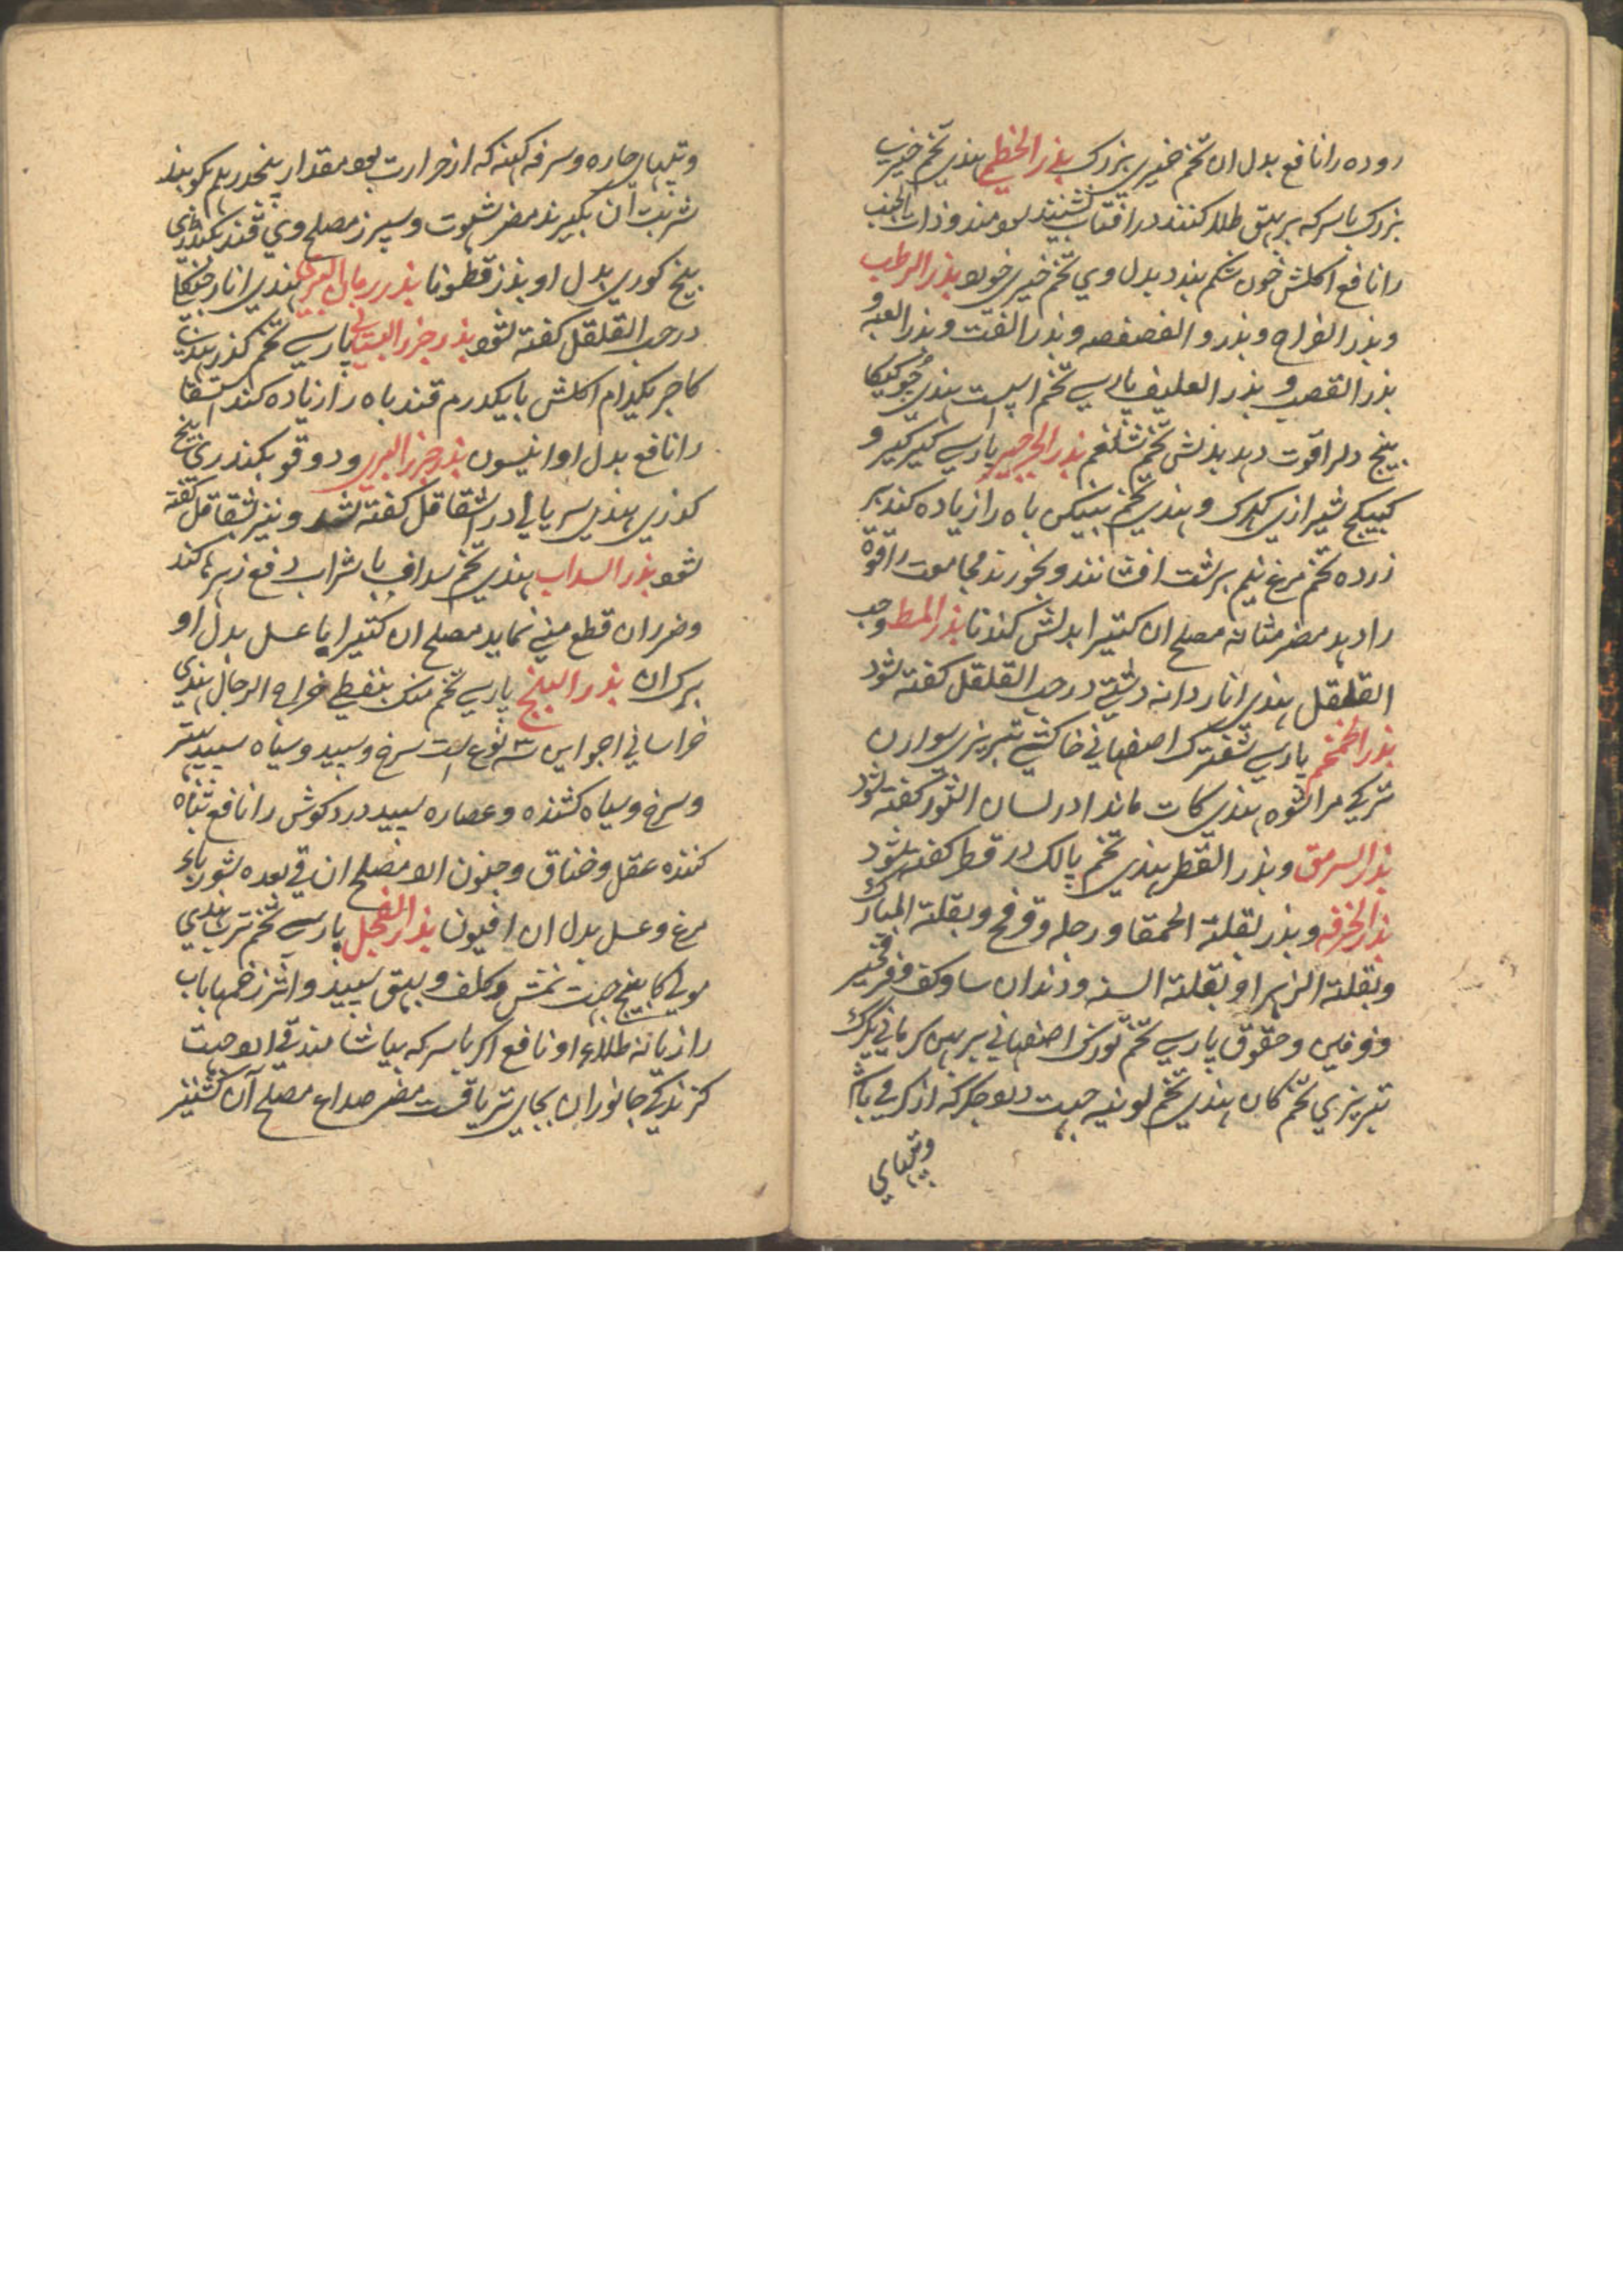 روده را نافع بدل ان تخم خیری بزرک بذر الخطمی هندی تخم خیری
بزرک با سرکه بر بهق طلا کنند در افتاب نشینند سودمند و ذات الجنب
را نافع اکلش خون شکم بندد بدل وی تخم خیری خورد بذر الرطب
و بذر القراح و بذر و الفصفصه و بذر القت و بذر
بذر القصب و بذر العلیف پارسی تخم اسپست هندی
بینج دلرا قوت دهد بدلش تخم شلغم بذر الجرجیر پارسی کیرکیر و
کبیکج شیرازی ککرک و هندی تخم باه را زیاده کند بر
زرده تخم مرغ نیم برشت افشانند و بخورند مجامعت را قوة
را دهد مضر مثانه مصلح ان کتیرا بدلش کندنا بذر المط وحب
القلقل هندی انار دانه دشتی در حب القلقل کفته شود
بذر الخمخم پارسی شفترک اصفهانی خاکشی تبریزی سواران
ترکی مراشوه هندی کات ماندا در لسان الثور کفته شود
بذر السرمق و بذر القطر هندی تخم پالک در قطر کفته شود
بذر الخرفه و بذر بقلة الحمقا و رجله و قرفخ و بقلة المبارک
و بقلة الزهرا و بقلة السنه و دندان ساو کف و فرفخیر
و فرفین و حقوق پارسی تخم تورک اصفهانی پرپهن کرمانی برک
تبریزی تخم کان هندی تخم لونیه جهت درد جکر که از کرمی باشد
وتبهای
وتبهای حاره و سرفه کهنه که از حرارت بود مقدار پنجدرهم کوبند
شربت ان بکیرند مضر شهوت و سپرز مصلح وی قند بکنددی
بیخ کوری بدل او بذر قطونا بذر رمان البری هندی انار جنکلی
در حب القلقل کفته شود بذر جزر البستانی پارسی تخم کذر هندی
کاجر بکدام اکلش با یکدرم قند باه را زیاده کند استسقا
را نافع بدل او انیسون بذر جزر البری و دوقو بکنددی بیخ
کذری هندی سریالی در اشقاقل کفته شد و نیز شقاقل کفته
شود بذر السداب هندی تخم سداف با شراب دفع زهرها کند
و ضرر ان قطع منی نماید مصلح ان کتیرا با عسل بدل او
برک ان بذر البنج پارسی تخم منک بنفطی خراح الرجال هندی
خراسانی اجواین ۳ نوع است سرخ و سپید و سیاه سپید بهتر
و سرخ و سیاه کشنده و عصاره سپید درد کوش را نافع تباه
کننده عقل و خناق و جنون ارد مصلح ان قی بعده شوربای
مرغ و عسل بدل ان افیون بذر الفجل پارسی تخم ترب هندی
مولی کا بینج جهت نمش و کلف و بهق سپید و اثر زخمها باب
رازیانه طلاء او نافع اکر با سرکه بیاشامند قی ارد جهت
کزندکی جانوران بجای تریاقست مضر صداع مصلح آن کشنیز